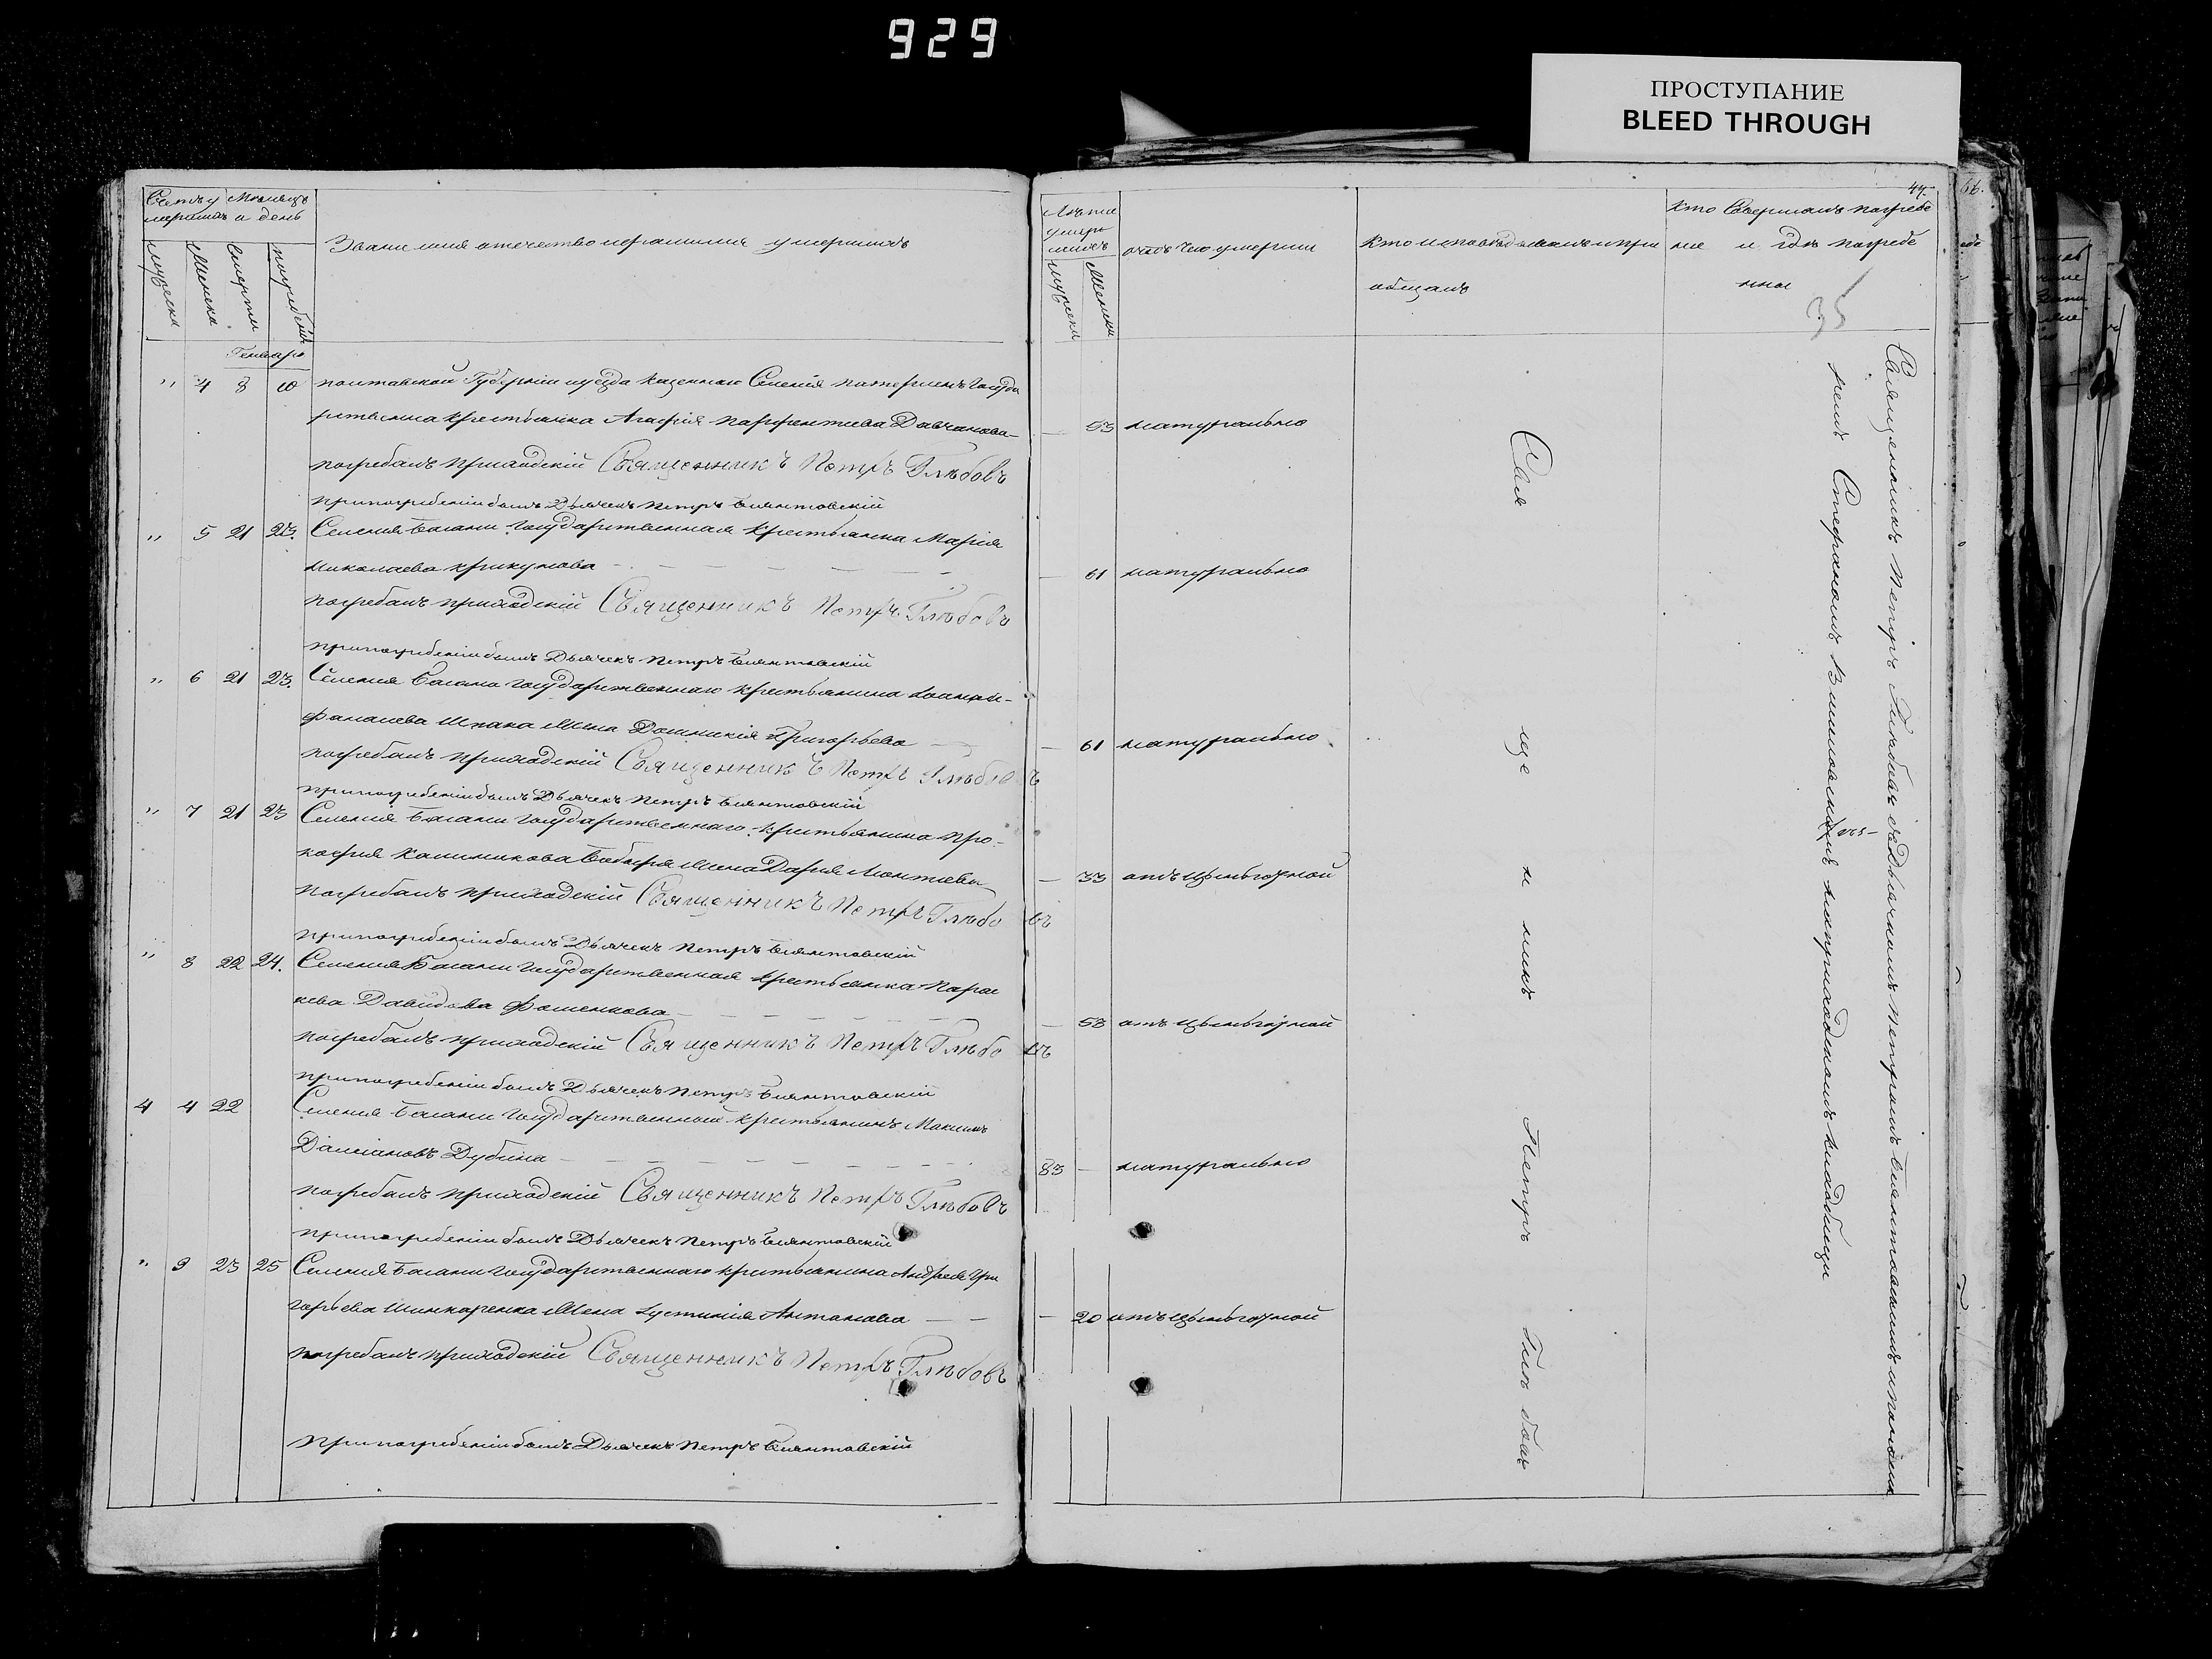 929
ПРОСТУПАНИЕ
BLEED THROUGH
Счетъ у
мершихъ
Месяцъ
и день
мужеска
Женска
Смерти
погребенія
Званіе имя отечество и фамилія умершихъ
Генваря
" 4 8 10 полтавской Губерніи казеннаго Селенія Госуда
рственна крестьянка Агафія Парфентіева
погребалъ приходскій Священникъ Петръ Глѣбовъ
припогребеніи былъ Дьячекъ Петръ
" 5 21 23. Селенія Балани государственная крестьянка Марія
Николаева крикунова
погребалъ приходскій Священникъ Петръ Глѣбовъ
припогребеніи былъ Дьячекъ Петръ
" 6 21 23. Селенія Балани государственнаго крестьянина
жена Григорьева
погребалъ приходскій Священникъ Петръ Глѣбовъ
припогребеніи былъ Дьячекъ Петръ
" 7 21 23 Селенія Балани государственнаго крестьянина Про
кофія жена Дарія Леонтіева
погребалъ приходскій Священникъ Петръ Глѣбовъ
припогребеніи былъ Дьячекъ Петръ
" 8 22 24. Селенія Балани государственная крестьянка Парас
кева Давидова Фоменкова
погребалъ приходскій Священникъ Петръ Глѣбовъ
припогребеніи былъ Дьячекъ Петръ
4 4 22 Селенія Балани государственный крестьянинъ Максимъ
Даміановъ Дубина
погребалъ приходскій Священникъ Петръ Глѣбовъ
припогребеніи былъ Дьячекъ Петръ
" 9 23 25 Селенія Балани государственнаго крестьянина Андрея Гри
горьева Шинкаренка жена Устинія Антонова
погребалъ приходскій Священникъ Петръ Глѣбовъ
припогребеніи былъ Дьячекъ Петръ
47.
66.
Лѣта
умер
шихъ
мужеска
Женска
отъ чего умерли
Кто исповѣдывалъ и при
общалъ
Кто Совершалъ погребе
ніе и гдѣ погребе
нны
35
53 натурально
61 натурально
61 натурально
33 отъ цынготной
53 отъ цынготной
83 натурально
20 отъ цынготной
Свя ще н никъ Петръ Глѣ бовъ
Священникъ Петръ Глѣбовъ съ Дьячкомъ Петромъ и
Стефаномъ на приходскомъ кладбищи